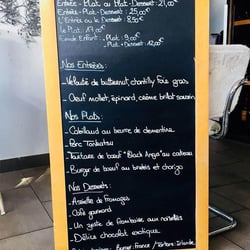 Entrée - Plat ou Plat - Dessert : 21,00 €
Entrée - Plat - Dessert : 25,00 €
L'Entrée ou le Dessert : 8,50 €
Le Plat : 17,00 €
Menu Enfant : - Plat : 9,00 €
- Plat - Dessert : 12,00 €
Nos Entrées :
- Velouté de butternut, chantilly foie gras
- Oeuf mollet, épinard, crème brillat savarin
Nos Plats :
- Cabillaud au beurre de clémentine
- Porc Tonkatsu
- Tartare de bœuf "Black Angus" au couteau
- Burger de bœuf au briates et chorizo
Nos Desserts :
- Assiette de fromages
- Café gourmand
- Un goût de framboise aux noisettes
- Délice chocolat exotique
Burger : France / Tartare : Irlande